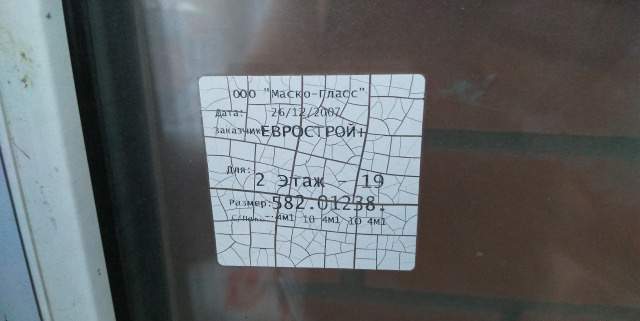 ООО "Маско-Гласс"
Дата: 26/12/2007
Заказчик ЕВРОСТРОЙ+
Для: 2 Этаж 19
Размер: 582.01238.
4М1 10 4М1 10 4М1